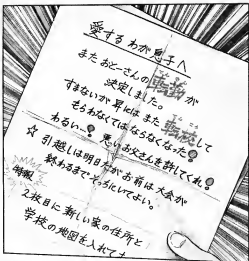 愛するわが息子へ
またおとーさんの転勤が
決定しました。
すまないが昇にはまた転校して
もらわなくてはならなくなった
わるいー 悪いお父さんを許してくれ
☆引越しは明日だがお前は大会が
終わるまでそっちにいてよい。
特報
2枚目に新しい家の住所と
学校の地図を入れて